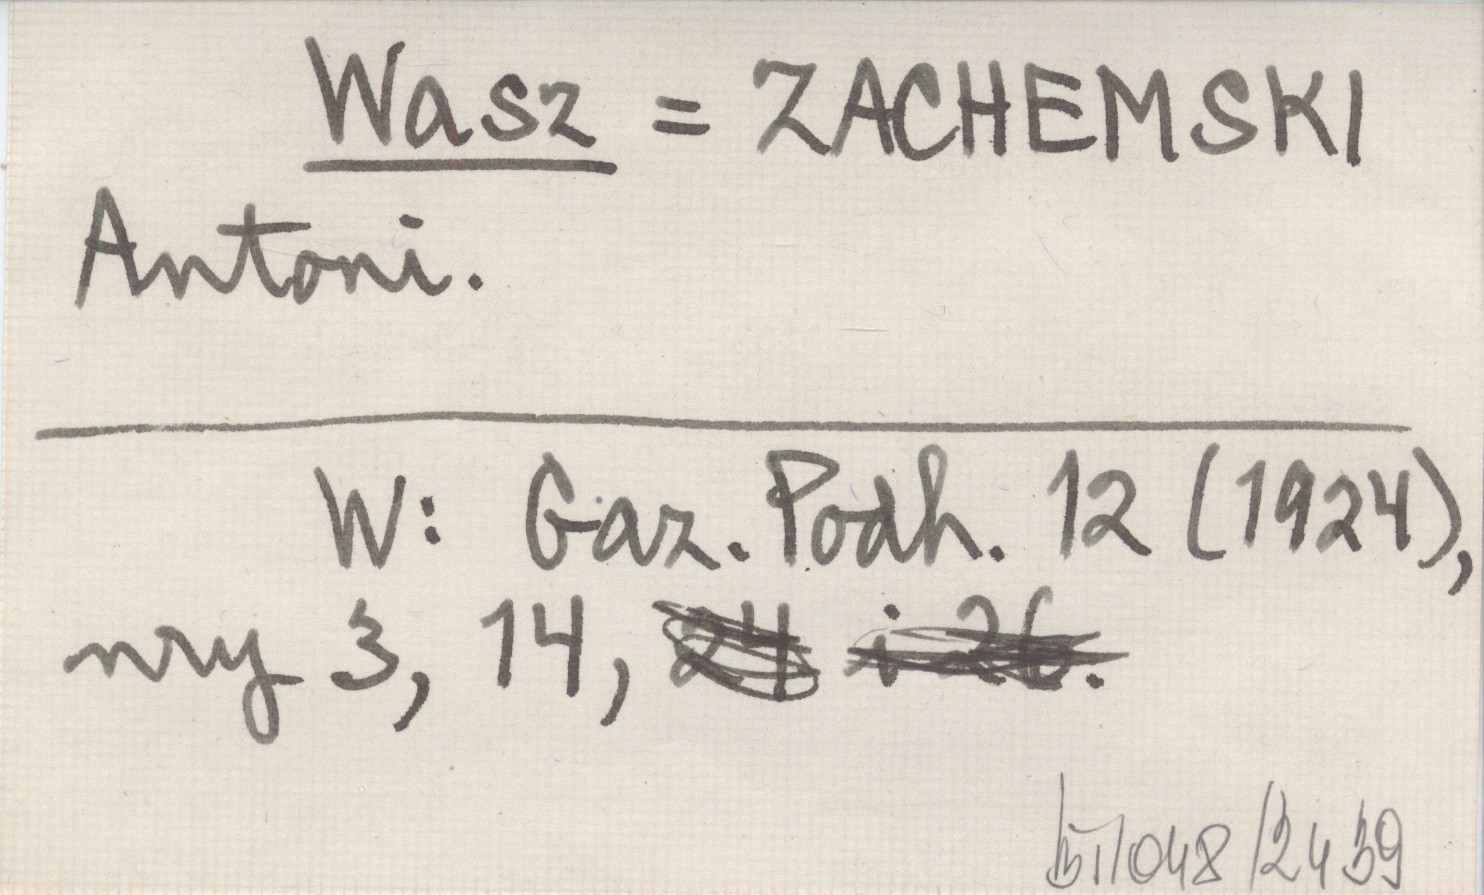 Wasz = ZACHEMSKI
Antoni.
W: Gaz. Podh. 12 (1924),
nry 3, 14, 24 i 26.